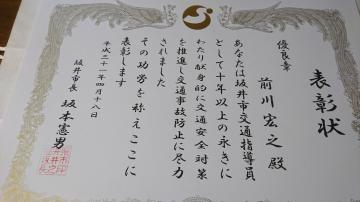 表彰状
優良章
前川宏之殿
あなたは坂井市交通指導員
として十年以上の永きに
わたり献身的に交通安全対策
を推進し交通事故防止に尽力
されました
その功労を称えここに
表彰します
平成二十一年四月十八日
坂井市長 坂本憲男